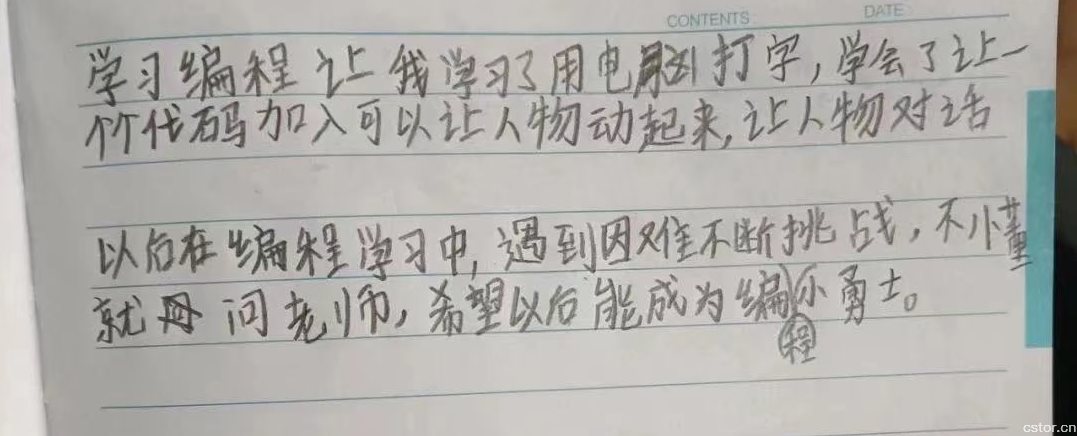 CONTENTS: DATE:
学习编程让我学习了用电脑打字,学会了让一
个个代码加入可以让人物动起来,让人物对话
以后在编程学习中,遇到困难不断挑战,不懂
就问老师,希望以后能成为编程小勇士。
cstor.cn